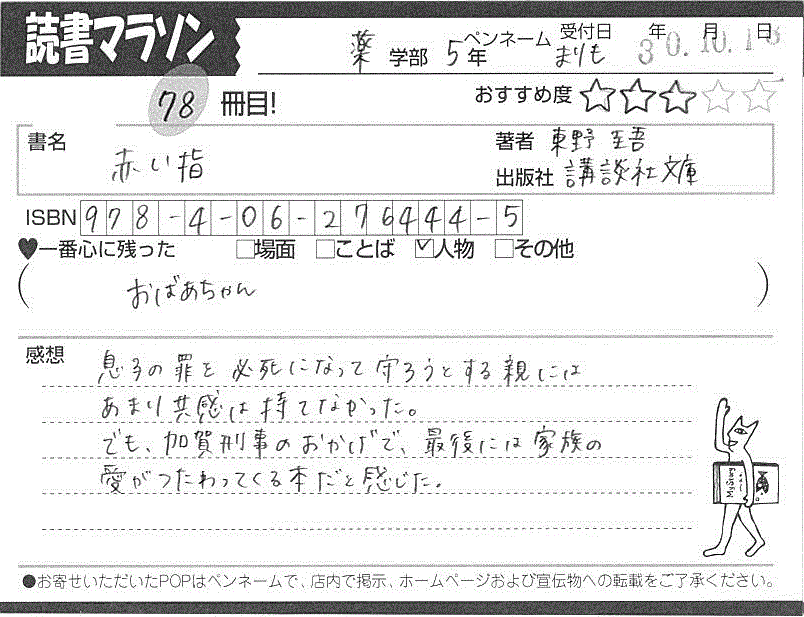 読書マラソン
薬 学部 5年 ペンネーム まりも 受付日 年 月 日
30.10.1
78 冊目!
おすすめ度 ★★★☆☆
書名 赤い指
著者 東野 圭吾
出版社 講談社文庫
ISBN 978-4-06-276444-5
♥一番心に残った □場面 □ことば ☑人物 □その他
( おばあちゃん )
感想
息子の罪を必死になって守ろうとする親には
あまり共感は持てなかった。
でも、加賀刑事のおかげで、最後には家族の
愛がつたわってくる本だと感じた。
●お寄せいただいたPOPはペンネームで、店内で掲示、ホームページおよび宣伝物への転載をご了承ください。